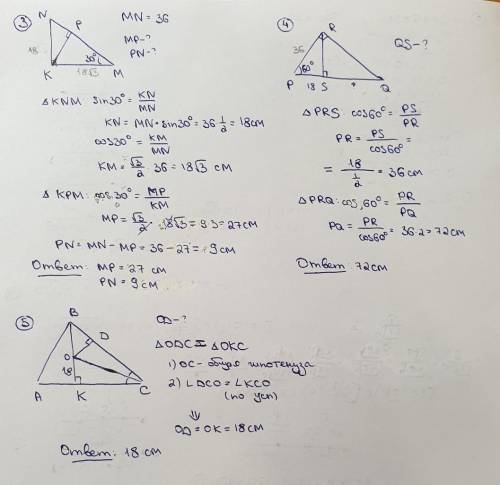 ③
N
P
18
30°
K
18√3
M
MN = 36
MP - ?
PN - ?
△ KNM sin30° = KN/MN
KN = MN · sin30° = 36 1/2 = 18 см
cos30° = KM/MN
KM = √3/2 36 = 18√3 см
△ KPM: cos 30° = MP/KM
MP = √3/2 · 18√3 = 9·3 = 27 см
PN = MN − MP = 36 − 27 = 9 см
Ответ: MP = 27 см
PN = 9 см
④
R
36
60°
P
18
S
Q
QS - ?
△ PRS: cos60° = PS/PR
PR = PS/cos60° =
= 18/(1/2) = 36 см
△PRQ: cos 60° = PR/PQ
PQ = PR/cos60° = 36·2 = 72 см
Ответ: 72 см
⑤
B
D
O
18
A
K
C
OD - ?
△ODC = △OKC
1) OC - общая гипотенуза
2) ∠DCO = ∠KCO
(по усл)
⇓
OD = OK = 18 см
Ответ: 18 см